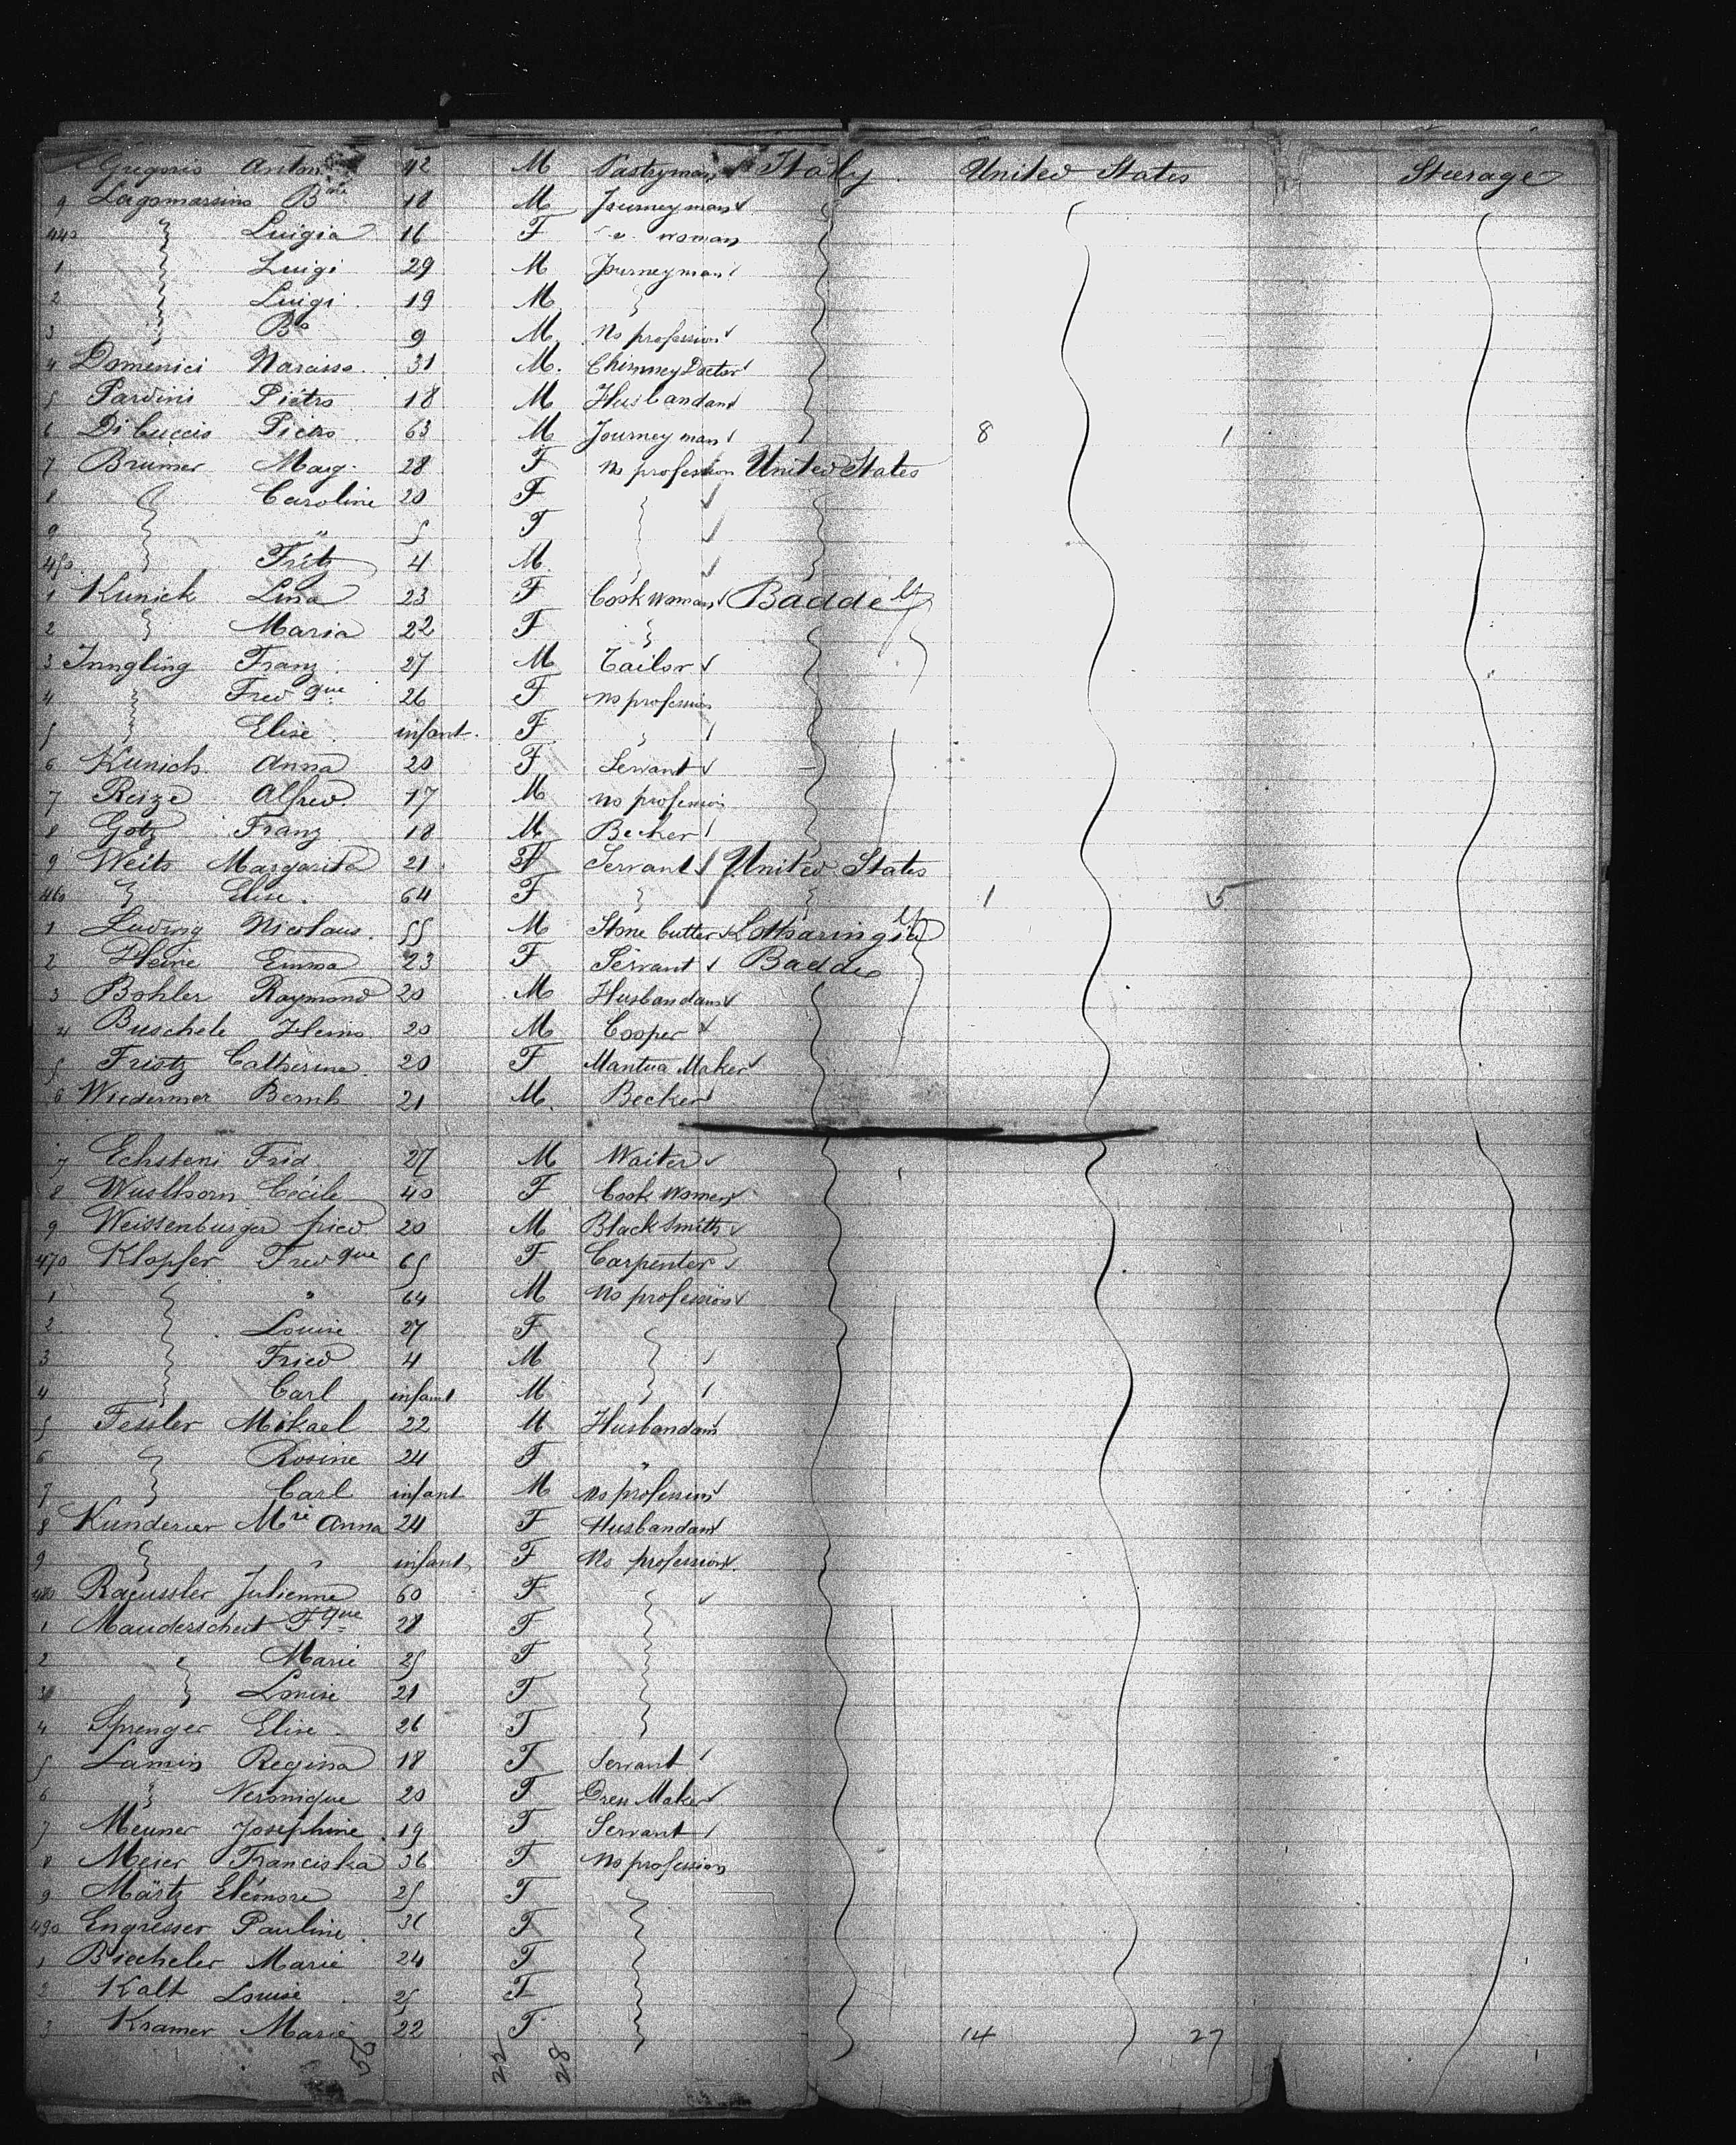 Gregorio Anton 42 M Pastryman Italy United States Steerage
9 Lagomarsino B 18 M Journeyman
440 Luigia 16 F woman
1 Luigi 29 M Journeyman
2 Luigi 19 M
3 Bo 9 M No profession
4 Domenici Narcisso 31 M. Chimney Doctor
5 Pardini Pietro 18 M Husbandant
6 Di Puccio Pietro 63 M Journeyman 8 1
7 Brumer Marg. 28 F no profession United States
8 Caroline 20 F
9 " 5 F
450 Fritz 4 M.
1 Kunick Lina 23 F Cook woman Badde
2 Maria 22 F
3 Inngling Franz 27 M Tailor
4 Fred que 26 F no profession
5 Elise infant F
6 Kunich Anna 20 F Servant
7 Reize Alfred 17 M no profession
8 Gotz Franz 18 M Becker
9 Weits Margarita 21 F Servant United States
460 Elise 64 F 1 5
1 Ludwig Nicolaus 55 M Stone Cutter Lotharingia
2 Heine Emma 23 F Servant Badde
3 Bohler Raymond 20 M Husbandant
4 Buschele Heino 20 M Cooper
5 Fristz Catherine 20 F Mantua Maker
6 Wiedermer Bernh 21 M. Becker
7 Echsteni Frid 27 M Waiter
8 Wusthorn Cécile 40 F Cook Women
9 Weissenburger fried 20 M Black Smith
470 Klopfer Fred que 65 F Carpenter
1 " 64 M No profession
2 Louise 27 F
3 Fried 4 M
4 Carl infant M
5 Fessler Mikael 22 M Husbandant
6 Rosine 24 F "
7 Carl infant M No profession
8 Kunderer Mrie Anna 24 F Husbandant
9 " infant F No profession
480 Raeussler Julienne 60 F
1 Mauderscheit F que 28 F
2 Marie 25 F
3 Louise 21 F
4 Sprenger Elise 26 F
5 Lamin Regina 18 F Servant
6 Veronique 20 F Dress Maker
7 Meuner Josephine 19 F Servant
8 Meier Franciska 36 F No profession
9 Märtz Eléonore 25 F
490 Engresser Pauline 36 F
1 Biecheler Marie 24 F
2 Kalt Louise 25 F
3 Kramer Marie 22 F 14 27
22 28